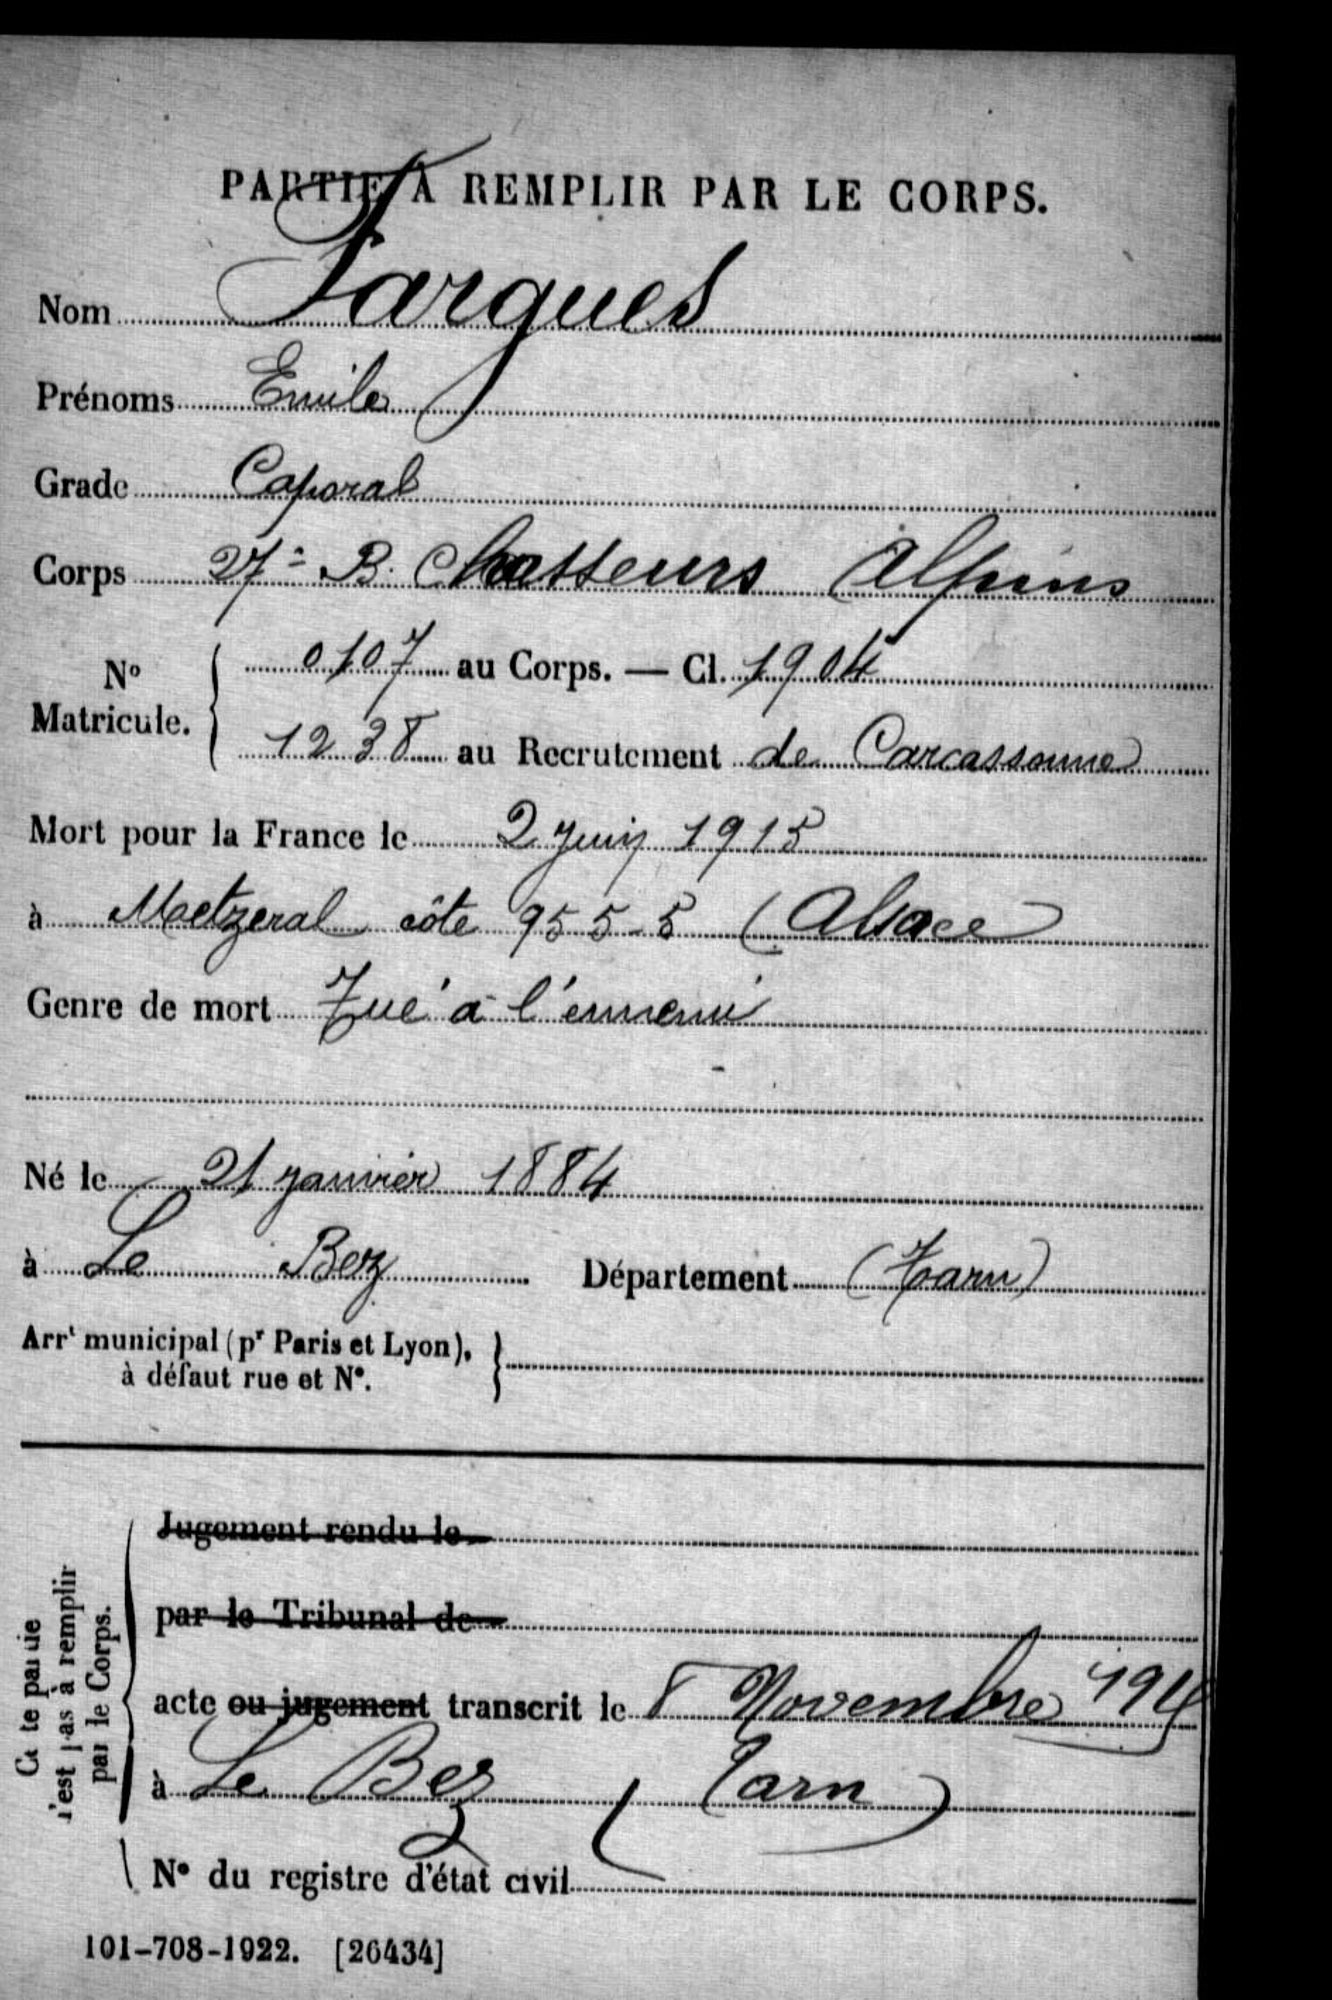 PARTIE À REMPLIR PAR LE CORPS.
Nom Fargues
Prénoms Emile
Grade Caporal
Corps 27e B. Chasseurs Alpins
No Matricule. 0107 au Corps. — Cl. 1904
1238 au Recrutement de Carcassonne
Mort pour la France le 2 Juin 1915
à Metzeral côte 955-5 (Alsace
Genre de mort Tué à l'ennemi
Né le 21 janvier 1884
à Le Bez Département (Tarn)
Arrt municipal (pr Paris et Lyon), à défaut rue et No.
Jugement rendu le
par le Tribunal de
acte ou jugement transcrit le 8 Novembre
à Le Bez (Tarn)
No du registre d'état civil
n'est pas à remplir
par le Corps.
101-708-1922. [26434]